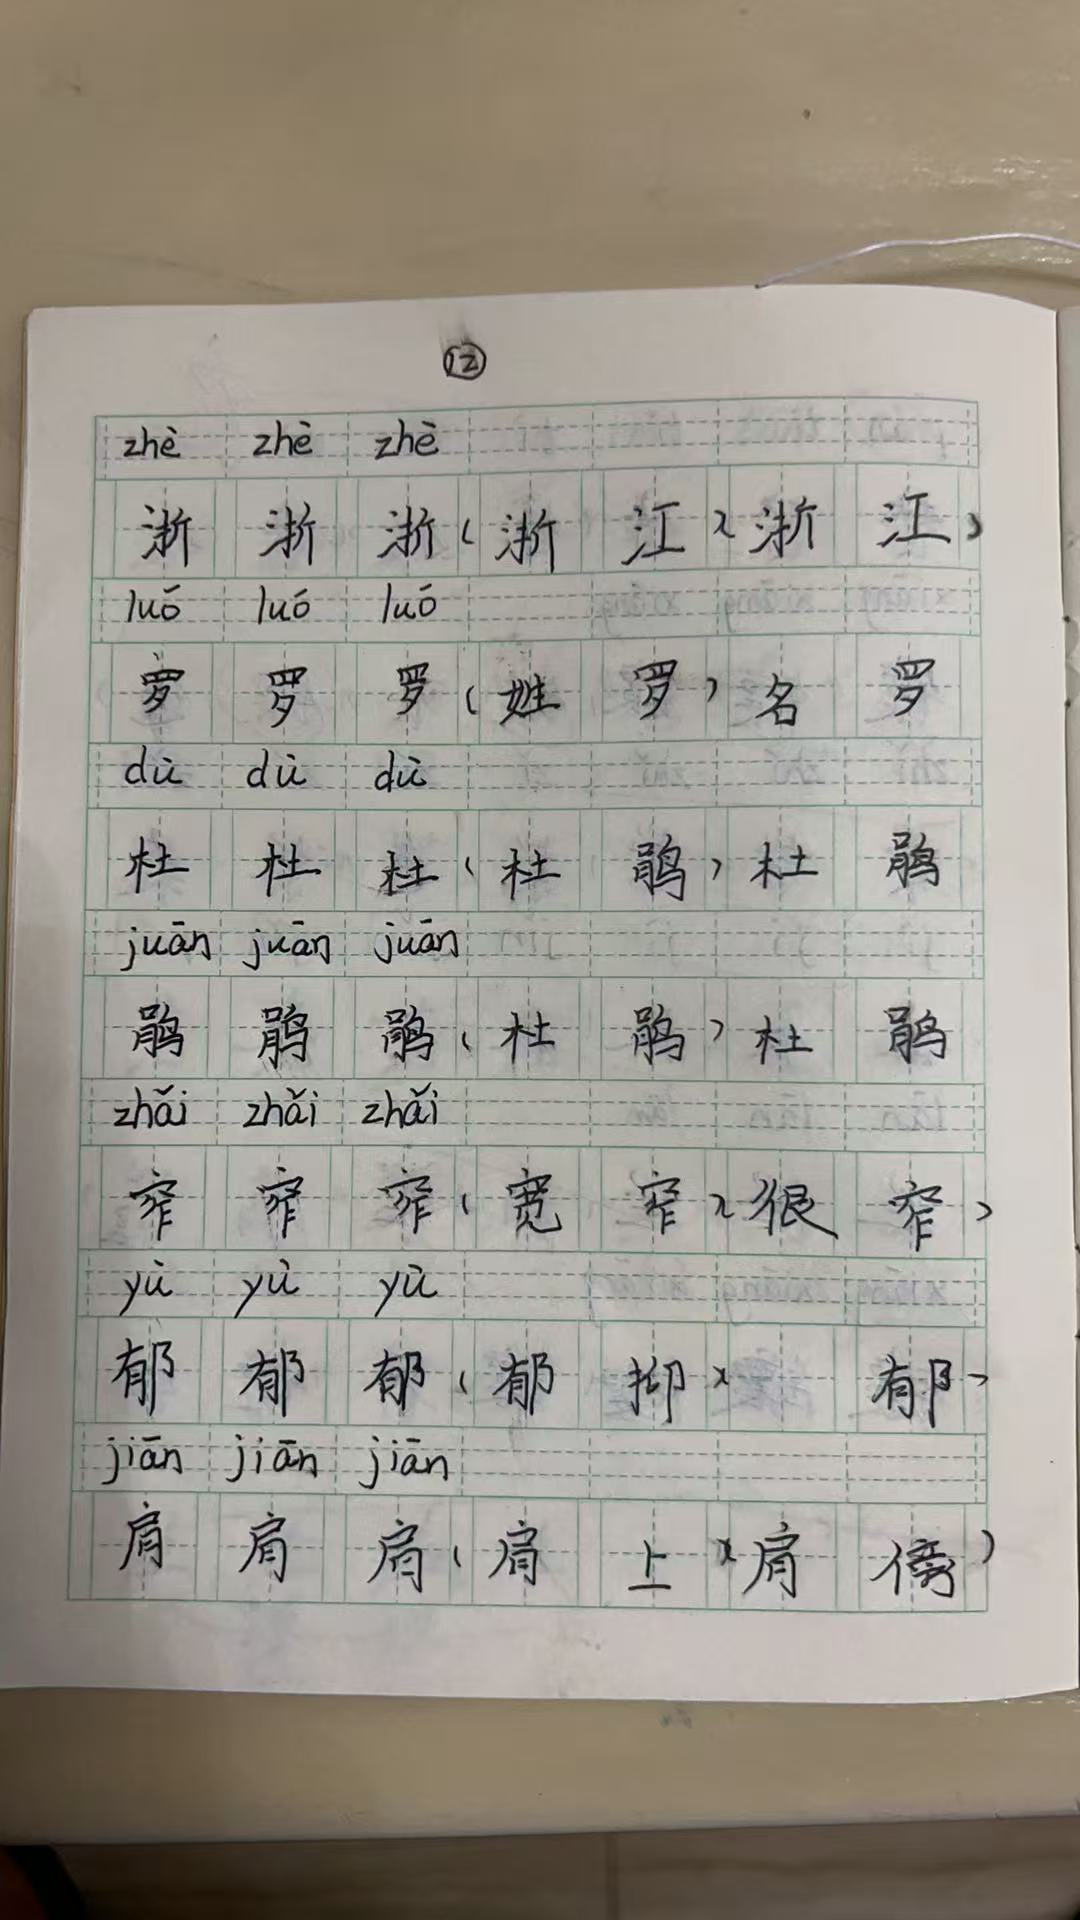 ⑫
zhè zhè zhè
浙 浙 浙（浙 江）（浙 江）
luó luó luó
罗 罗 罗（姓 罗）名 罗
dù dù dù
杜 杜 杜（杜 鹃）杜 鹃
juān juān juān
鹃 鹃 鹃（杜 鹃）杜 鹃
zhǎi zhǎi zhǎi
窄 窄 窄（宽 窄）（很 窄）
yù yù yù
郁 郁 郁（郁 抑）（ 郁）
jiān jiān jiān
肩 肩 肩（肩 上）（肩 傍）